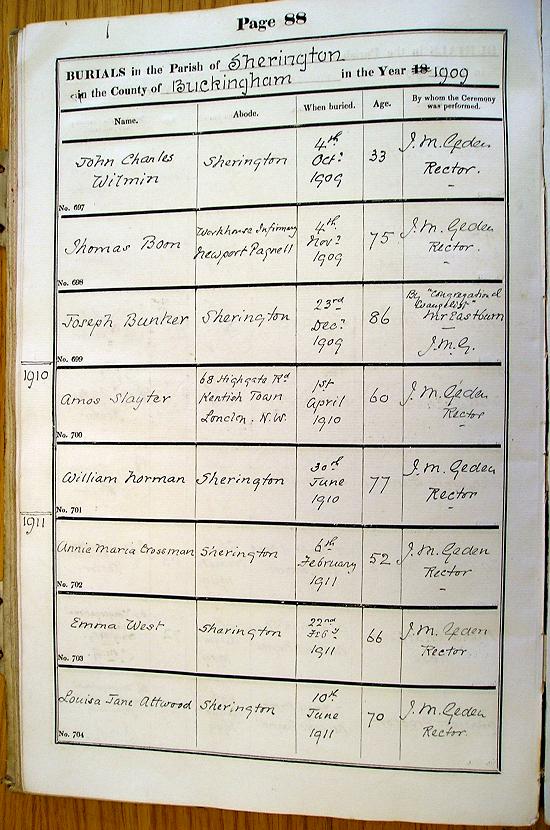 Page 88
BURIALS in the Parish of Sherington
in the County of Buckingham in the Year 18 1909
Name. Abode. When buried. Age. By whom the Ceremony was performed.
John Charles
Wilmin
No. 697
Sherington
4th
Octr
1909
33
J. M. Geden
Rector.
Thomas Boon
No. 698
Workhouse Infirmary
Newport Pagnell
4th
Novr
1909
75
J. M. Geden
Rector.
Joseph Bunker
No. 699
Sherington
23rd
Decr
1909
86
By "Congregational
Evangelist"
Mr Eastburn
J. M. G.
1910
Amos Slayter
No. 700
68 Highgate Rd
Kentish Town
London. N.W.
1st
April
1910
60
J. M. Geden
Rector
William Norman
No. 701
Sherington
30th
June
1910
77
J. M. Geden
Rector
1911
Annie Maria Crossman
No. 702
Sherington
6th
February
1911
52
J. M. Geden
Rector
Emma West
No. 703
Sherington
22nd
Feby
1911
66
J. M. Geden
Rector.
Louisa Jane Attwood
No. 704
Sherington
10th
June
1911
70
J. M. Geden
Rector.